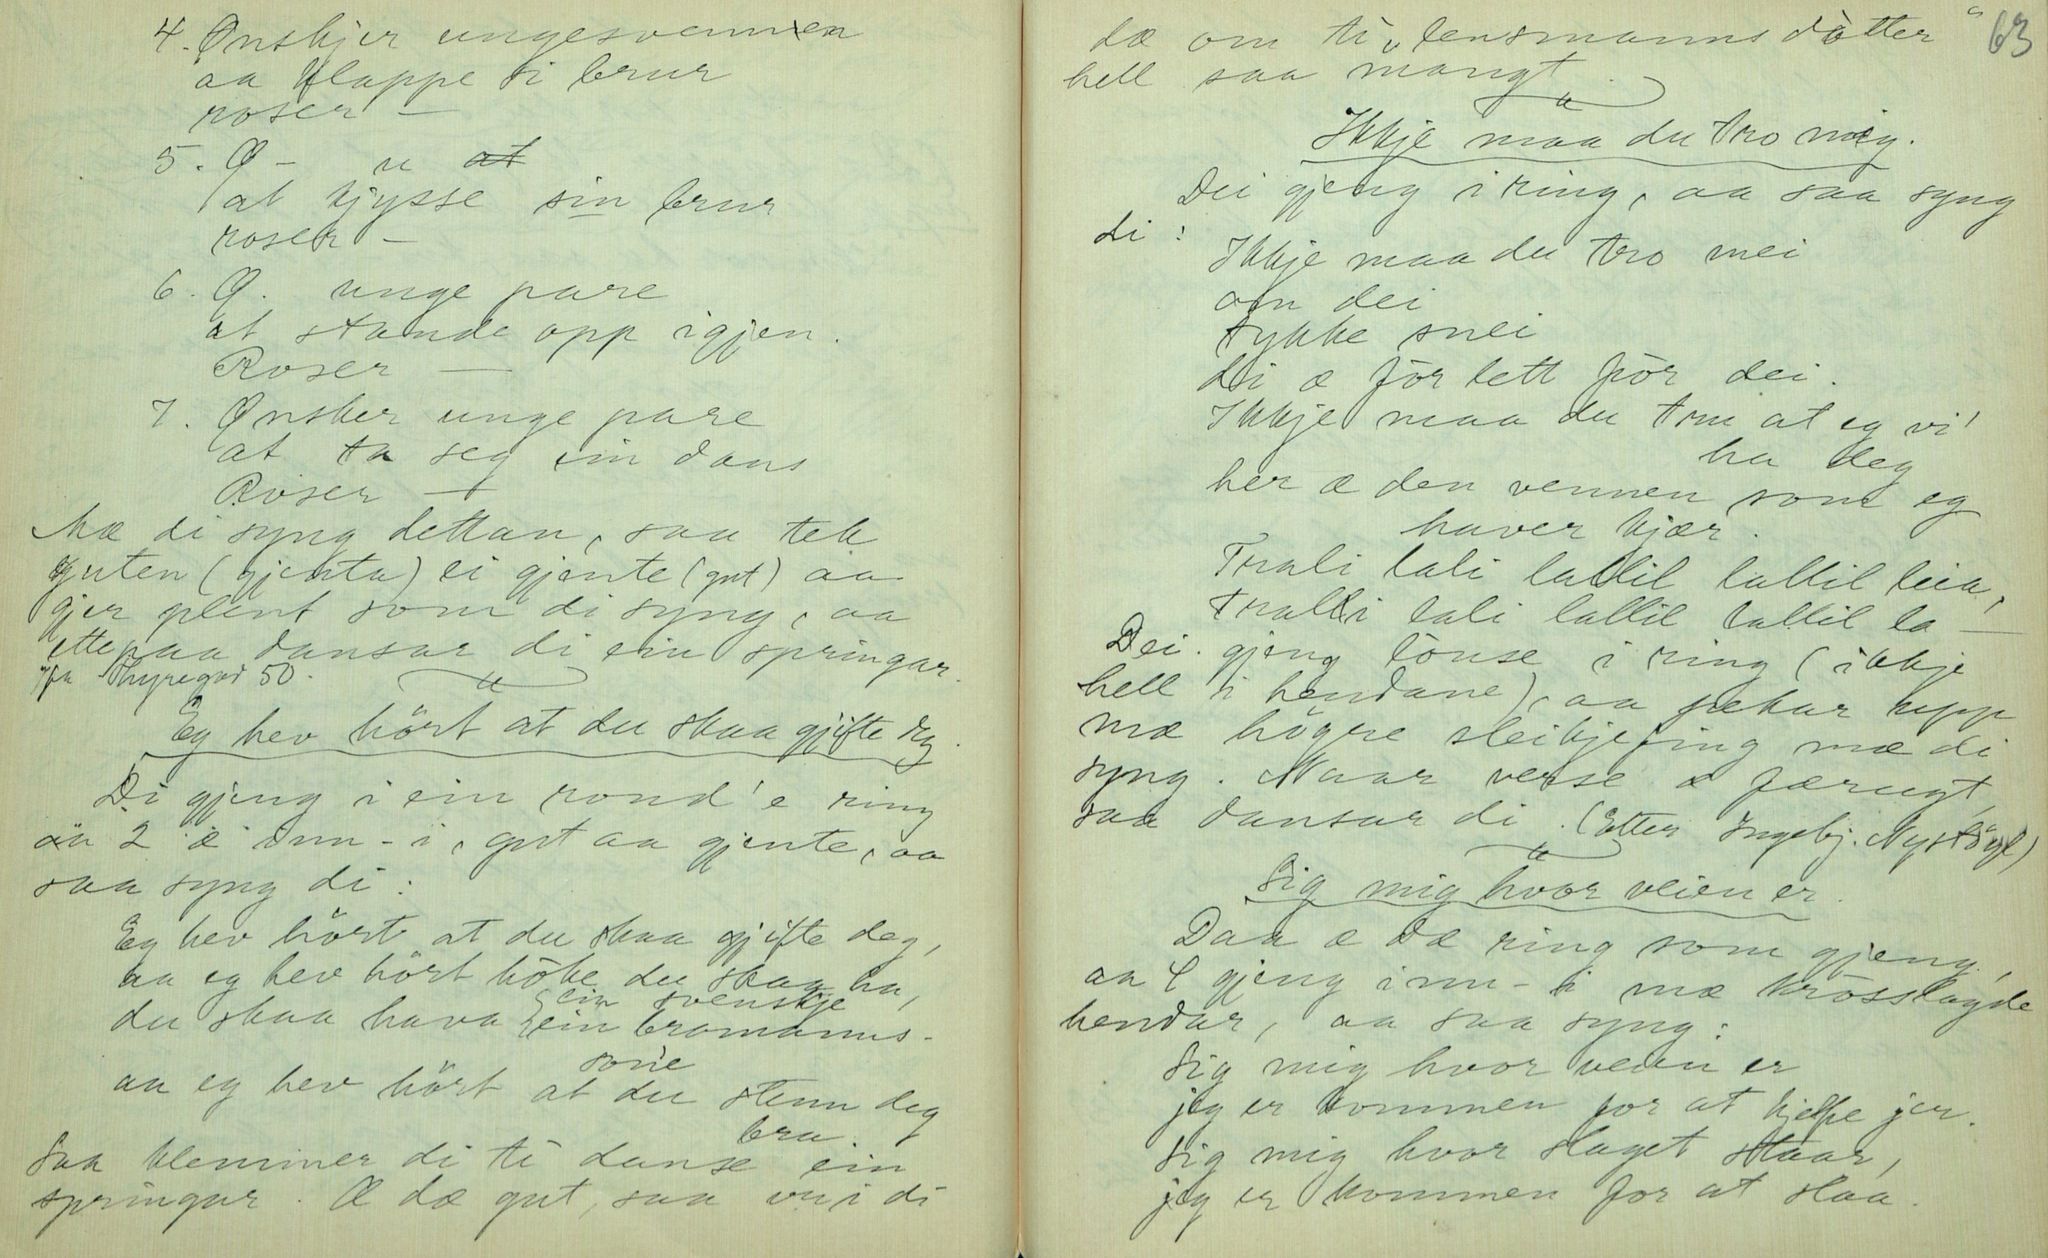 4. Ønskjer ungesvennen
aa klappe si brur
roser —
5. Ø – " at
at kjysse sin brur
roser –
6. Ø. unge pare
at stande opp igjen.
Roser —
7. Ønsker unge pare
at ta seg ein dans
Roser —
Mæ di syng dettan, saa tek
guten (gjenta) ei gjente (gut) aa
gjer plent som di syng, aa
ettepaa dansar di ein springar.
ifrå Thyregod 50.
Eg hev hört at du skaa gjifte deg.
Di gjeng i ein rond'e ring
aa 2 æ inn-i, gut aa gjente, aa
saa syng di:
Eg hev hört at du skaa gjifte deg,
aa eg hev hört höke du skaa ha,
ein svenskje
du skaa hava ein bromanns-
son'e
aa eg hev hört at du stenn deg
bra.
Saa klemmer di te danse ein
springar. Æ dæ gut, saa vri di
63
dæ om ti „lensmannsdòtter"
hell saa mangt.
Ikkje maa du tro mig.
Dei gjeng i ring, aa saa syng
di:
Ikkje maa du tro mei
om dei
tykke snei
di æ för lett för dei.
Ikkje maa du tru at eg vi'
ha deg
her æ den vennen som eg
haver kjær.
Trali lali lallil lallil leia,
tralli lali lallil lallil la —
Dei gjeng löuse i ring (ikkje
hell i hendane), aa pekar upp
mæ högre sleikjefing mæ di
syng. Naar verse æ færugt,
saa dansar di. (Etter Ingebj. Nystögl)
Sig mig hvor veien er.
Daa æ dæ ring som gjeng,
aa 4 gjeng inn-i mæ krosslagde
hendar, aa saa syng:
Sig mig hvor veien er
jeg er kommen for at hjelpe jer.
Sig mig hvor slaget staar,
jeg er kommen for at slaa.